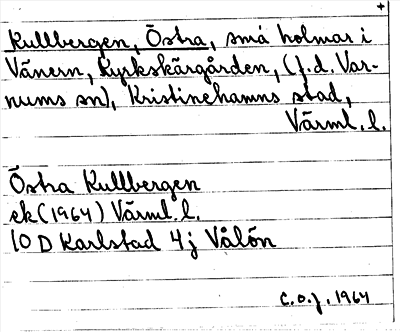 +
Kullbergen, Östra, små holmar i
Vänern, Kyrkskärgården, (f.d. Var-
nums sn), Kristinehamns stad,
Värml. l.
Östra Kullbergen
ek (1964) Värml. l.
10 D Karlstad 4j Vålön
C.O.J. 1964